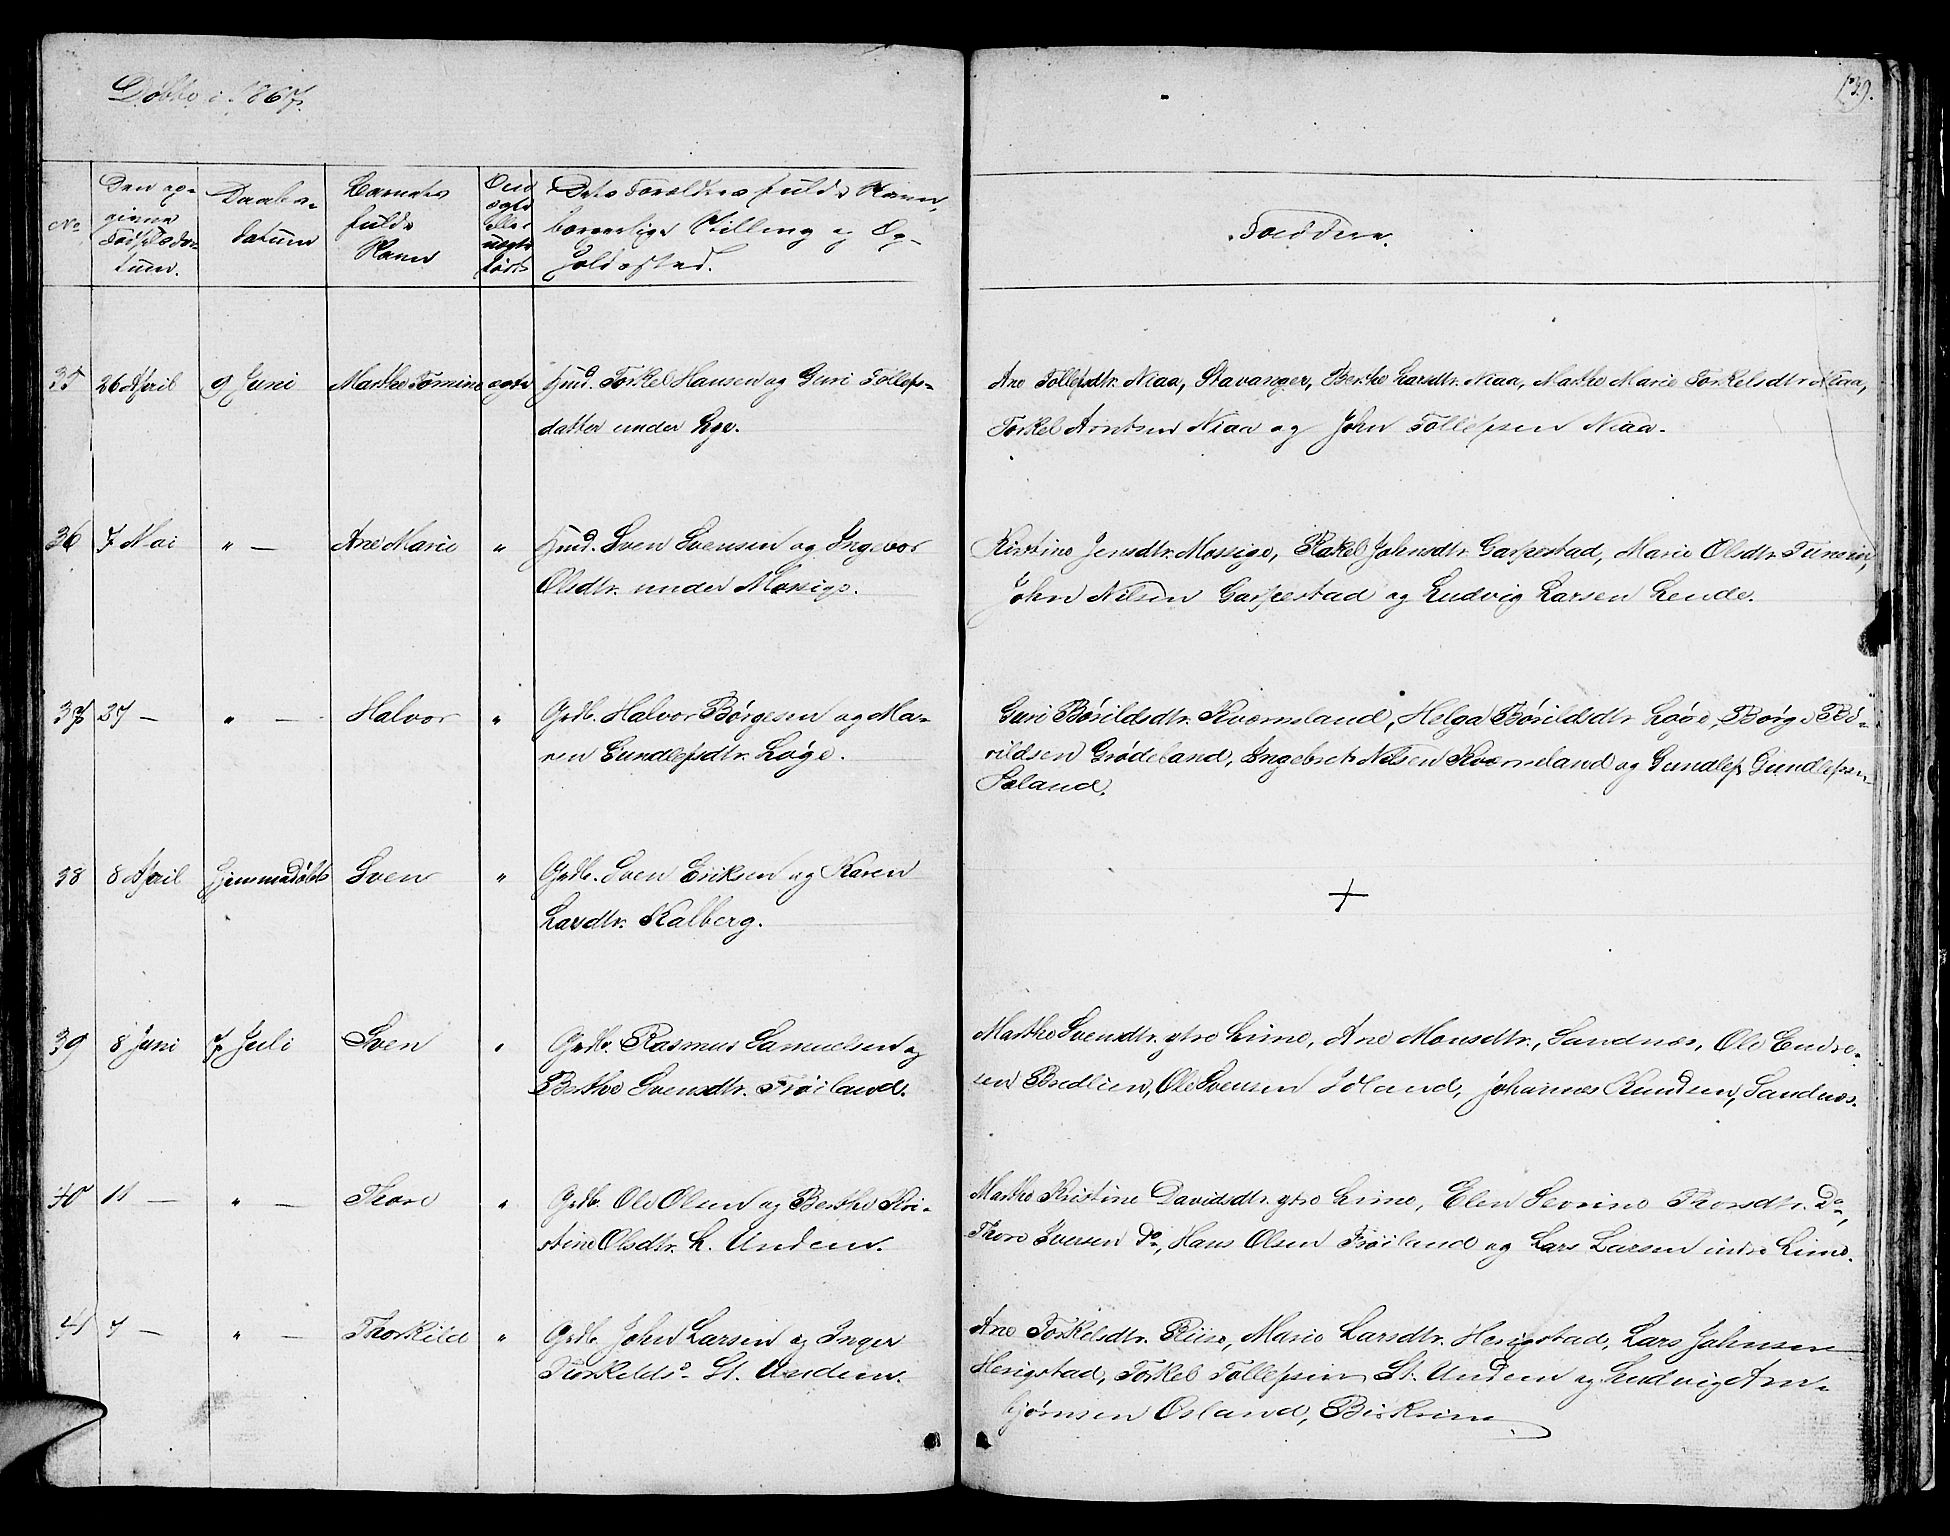 Döbte i 1867.
139.
No
Den op-
givne
Födselsda-
tum.
Daabs-
datum
Barnets
fulde
Navn
Om
ægte
eller
uægte
födt.
Dets Forældres fulde Navn,
borgerlige Stilling og Op-
holdssted.
Faddere.
35 26 April 9 Juni Marthe Tomine ægte Huusm. Torkel Hansen og Guri Tollefs-
datter under Lye.
Ane Tollefsdtr. Niaa, Stavanger, Berthe Larsdtr. Niaa, Marthe Marie Torkelsdtr Niaa,
Torkel Arntsen Niaa og John Tollefsen Niaa.
36 7 Mai " — Ane Marie " Huusm. Sven Svensen og Ingebor
Olsdtr. under Mossige.
Kirstine Jensdtr. Mossige, Rakel Johnsdtr. Garpestad, Marie Olsdtr. Tunem,
John Nilsen Garpestad og Ludvig Larsen Lende.
37 27 — " — Halvor " Grdb. Halvor Börgesen og Ma-
ren Gundlefsdtr. Löge.
Guri Börildsdtr. Kværneland, Helga Börildsdtr Löge, Börge Bö-
rildsen Grödeland, Ingebret Nilsen Kværneland og Gundlef Gundlefsen
Söland.
38 8 April Hjemmedöbt Sven " Grdb. Sven Eriksen og Karen
Larsdtr. Kalberg.
+
39 8 Juni 7 Juli Sven " Grdb. Rasmus Samuelsen og
Berthe Svensdtr. Fröiland.
Marthe Svensdtr. ytre Lime, Ane Monsdtr., Sandnæs, Ole Endre-
sen Bredlien, Ole Svensen Töland, Johannes Knudsen, Sandnæs.
40 11 — " — Thore " Grdb. Ole Olsen og Berthe Kri-
stine Olsdtr. L. Undem.
Marthe Kristine Davidsdtr. ytre Lime, Elen Sevrine Thorsdtr. Do,
Thore Iversen Do, Hans Olsen Fröiland og Lars Larsen indre Lime.
41 7 — " — Thorkild " Grdb. John Larsen og Inger
Torkeldsd St. Undem.
Ane Torkelsdtr. Riise, Marie Larsdtr. Herigstad, Lars Johnsen
Herigstad, Torkel Tollefsen St. Undem og Ludvig Arn-
björnsen Osland, Bjerkreim